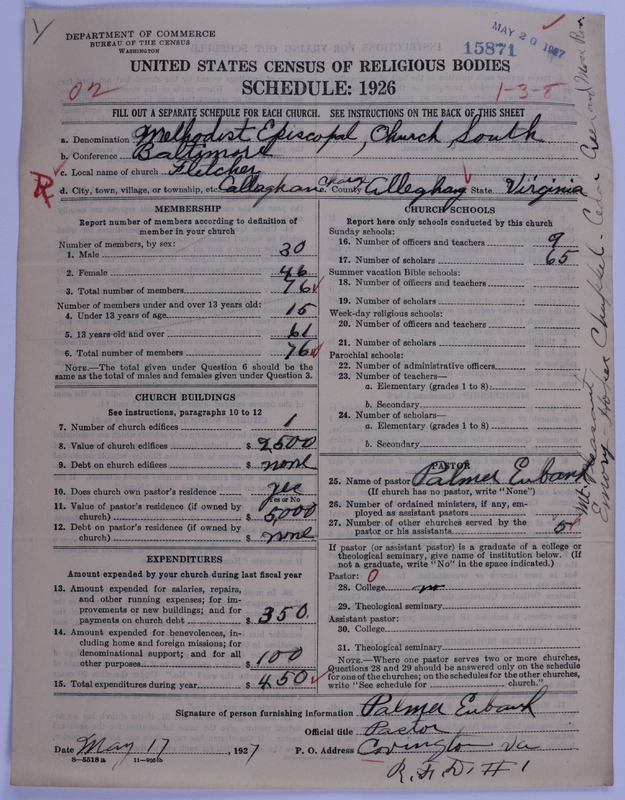 DEPARTMENT OF COMMERCE
BUREAU OF THE CENSUS
WASHINGTON
MAY 20 1927
15871
UNITED STATES CENSUS OF RELIGIOUS BODIES
SCHEDULE: 1926
02
1-3-8
FILL OUT A SEPARATE SCHEDULE FOR EACH CHURCH. SEE INSTRUCTIONS ON THE BACK OF THIS SHEET
a. Denomination Methodist Episcopal, Church, South
b. Conference Baltimore
c. Local name of church Fletcher
d. City, town, village, or township, etc. Callaghan e. County Alleghany State Virginia
MEMBERSHIP
Report number of members according to definition of member in your church
Number of members, by sex:
1. Male 30
2. Female 46
3. Total number of members 76
Number of members under and over 13 years old:
4. Under 13 years of age 15
5. 13 years old and over 61
6. Total number of members 76
NOTE.—The total given under Question 6 should be the same as the total of males and females given under Question 3.
CHURCH BUILDINGS
See instructions, paragraphs 10 to 12
7. Number of church edifices 1
8. Value of church edifices $ 2500
9. Debt on church edifices $ none
10. Does church own pastor's residence yes
Yes or No
11. Value of pastor's residence (if owned by church) $ 5,000
12. Debt on pastor's residence (if owned by church) $ none
EXPENDITURES
Amount expended by your church during last fiscal year
13. Amount expended for salaries, repairs, and other running expenses; for improvements or new buildings; and for payments on church debt $ 350.
14. Amount expended for benevolences, including home and foreign missions; for denominational support; and for all other purposes $ 100
15. Total expenditures during year $ 450
CHURCH SCHOOLS
Report here only schools conducted by this church
Sunday schools:
16. Number of officers and teachers 9
17. Number of scholars 65
Summer vacation Bible schools:
18. Number of officers and teachers
19. Number of scholars
Week-day religious schools:
20. Number of officers and teachers
21. Number of scholars
Parochial schools:
22. Number of administrative officers
23. Number of teachers—
a. Elementary (grades 1 to 8)
b. Secondary
24. Number of scholars—
a. Elementary (grades 1 to 8)
b. Secondary
PASTOR
25. Name of pastor Palmer Eubank
(If church has no pastor, write "None")
26. Number of ordained ministers, if any, employed as assistant pastors
27. Number of other churches served by the pastor or his assistants 5
If pastor (or assistant pastor) is a graduate of a college or theological seminary, give name of institution below. (If not a graduate, write "No" in the space indicated.)
Pastor: 0
28. College no
29. Theological seminary
Assistant pastor:
30. College
31. Theological seminary
NOTE.—Where one pastor serves two or more churches, Questions 28 and 29 should be answered only on the schedule for one of the churches; on the schedules for the other churches, write "See schedule for church."
Signature of person furnishing information Palmer Eubank
Official title Pastor
Date May 17, 1927 P. O. Address Covington Va
R.F.D. #1
8—5518a 11—9255b
Mt. Pleasant
Emory - Hooks Chappel - Cedar Creek and Moss Run